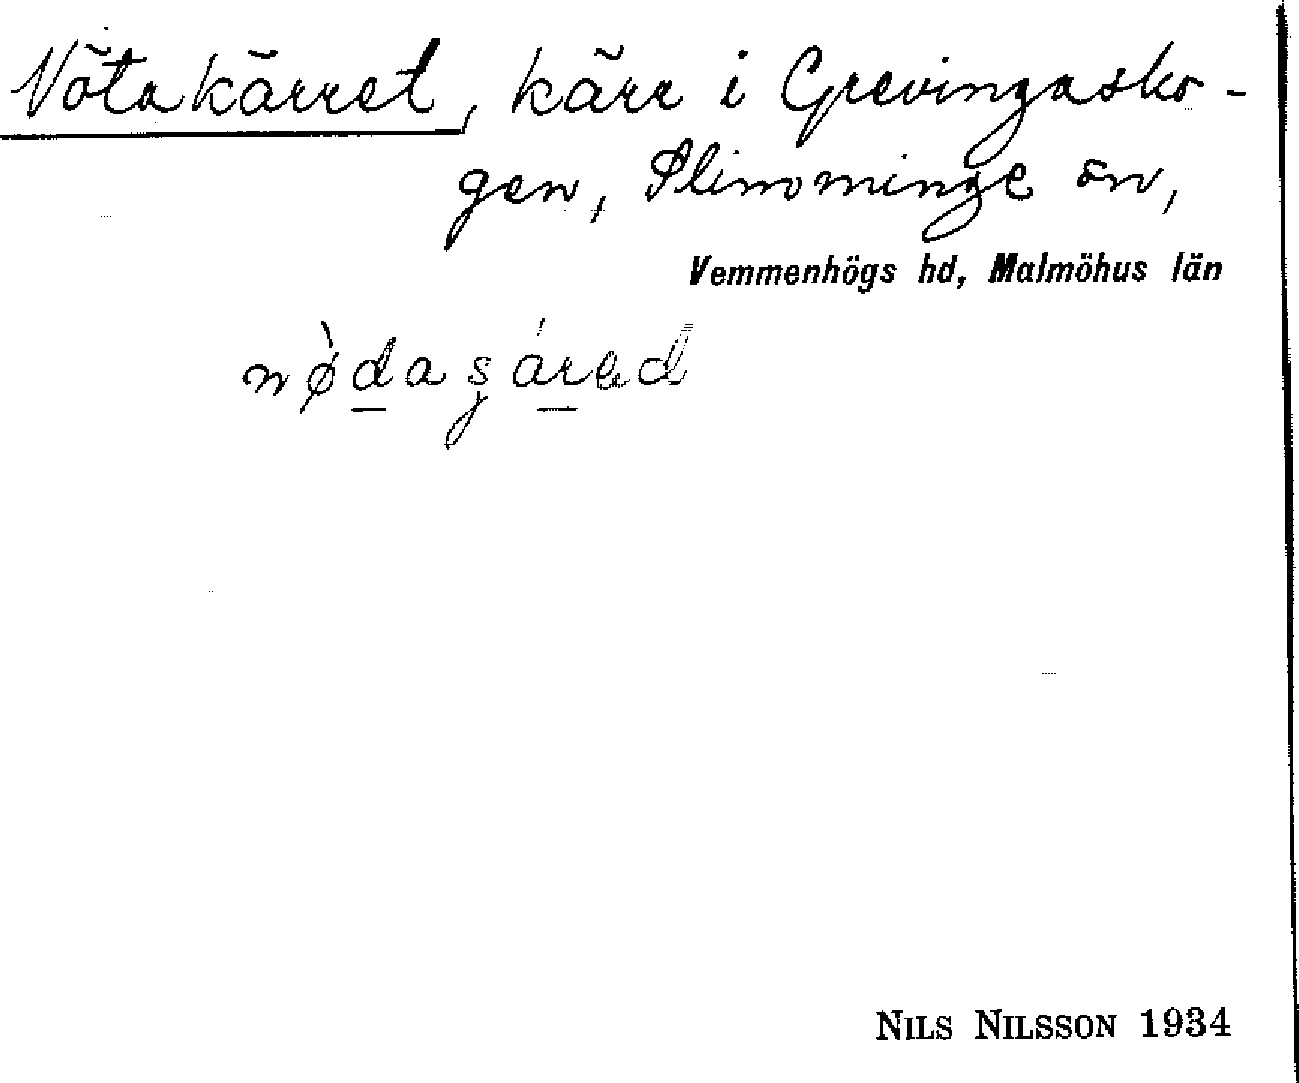 Nötakärret, kärr i Grevingasko-
gen, Slimminge sn,
Vemmenhögs hd, Malmöhus län
NILS NILSSON 1934